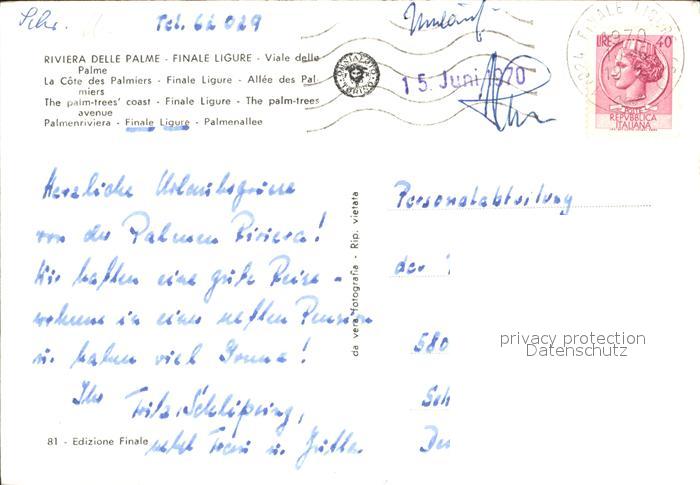 Tel. 62 029
Umlauf
RIVIERA DELLE PALME - FINALE LIGURE - Viale delle
Palme
La Côte des Palmiers - Finale Ligure - Allée des Pal
miers
The palm-trees' coast - Finale Ligure - The palm-trees
avenue
Palmenriviera - Finale Ligure - Palmenallee
15. Juni 1970
FINALE LIGURE
1970
LIRE 40
POSTE
REPVBBLICA
ITALIANA
Herzliche Urlaubsgrüsse
von der Palmen Riviera!
Wir hatten eine gute Reise -
wohnen in einer netten Pension
u. haben viel Sonne!
Ihr Fritz Schlipsing,
nebst Frau u.
81 - Edizione Finale
da vera fotografia - Rip. vietata
Personalabteilung
der
580
Sch
privacy protection
Datenschutz